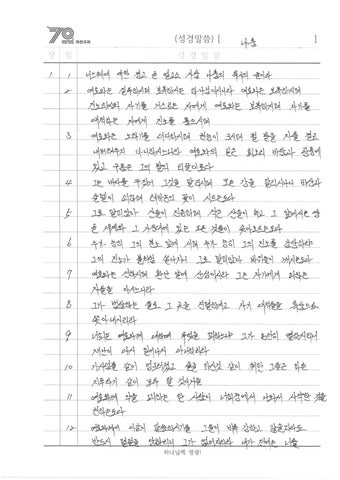 70 과천교회
(성경말씀) [ 나훔 ]
장 절 성 경 말 씀
1 1 니느웨에 대한 경고 곧 엘고스 사람 나훔의 묵시의 글이라
2 여호와는 질투하시며 보복하시는 하나님이시니라 여호와는 보복하시며
진노하시되 자기를 거스르는 자에게 여호와는 보복하시며 자기를
대적하는 자에게 진노를 품으시며
3 여호와는 노하기를 더디하시며 권능이 크시며 벌 받을 자를 결코
내버려두지 아니하시느니라 여호와의 길은 회오리 바람과 광풍에
있고 구름은 그의 발의 티끌이로다
4 그는 바다를 꾸짖어 그것을 말리시며 모든 강을 말리시나니 바산과
갈멜이 쇠하며 레바논의 꽃이 시드는도다
5 그로 말미암아 산들이 진동하며 작은 산들이 녹고 그 앞에서는 땅
곧 세계와 그 가운데에 있는 모든 것들이 솟아오르는도다
6 누가 능히 그의 분노 앞에 서며 누가 능히 그의 진노를 감당하랴
그의 진노가 불처럼 쏟아지니 그로 말미암아 바위들이 깨지는도다
7 여호와는 선하시며 환난 날에 산성이시라 그는 자기에게 피하는
자들을 아시느니라
8 그가 범람하는 물로 그 곳을 진멸하시고 자기 대적들을 흑암으로
쫓아내시리라
9 너희는 여호와께 대하여 무엇을 꾀하느냐 그가 온전히 멸하시리니
재난이 다시 일어나지 아니하리라
10 가시덤불 같이 엉크러졌고 술을 마신것 같이 취한 그들은 마른
지푸라기 같이 모두 탈 것이거늘
11 여호와께 악을 꾀하는 한 사람이 너희중에서 나와서 사악한 것을
권하는도다
12 여호와께서 이같이 말씀하시기를 그들이 비록 강하고 많을지라도
반드시 멸절을 당하리니 그가 없어지리라 내가 전에는 너를
하나님께 영광!